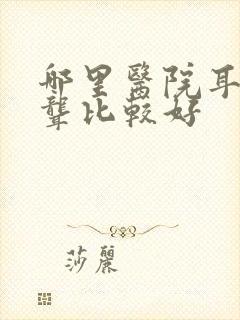 哪里醫院耳
聾比較好
莎麗